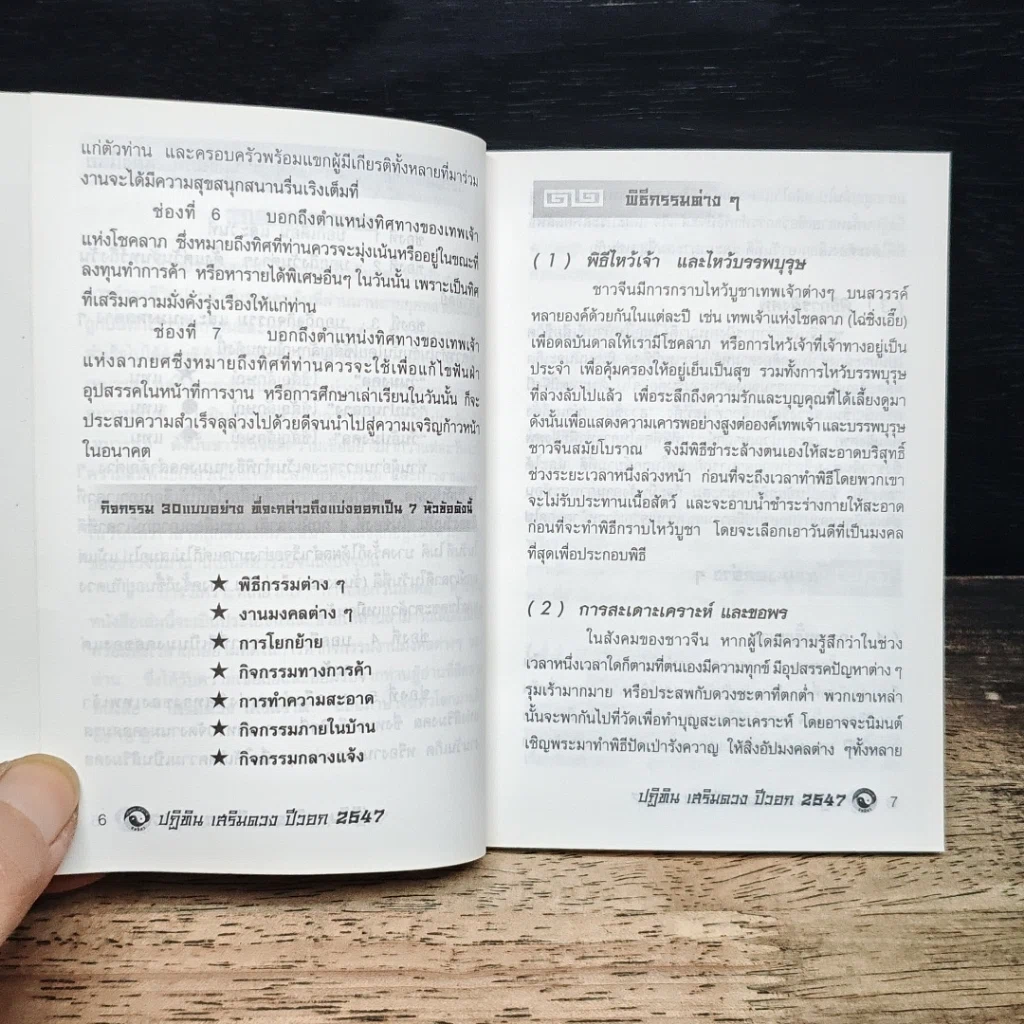 แก่ตัวท่าน และครอบครัวพร้อมแขกผู้มีเกียรติทั้งหลายที่มาร่วม
งานจะได้มีความสุขสนุกสนานรื่นเริงเต็มที่
ช่องที่ 6 บอกถึงตำแหน่งทิศทางของเทพเจ้า
แห่งโชคลาภ ซึ่งหมายถึงทิศที่ท่านควรจะมุ่งเน้นหรืออยู่ในขณะที่
ลงทุนทำการค้า หรือหารายได้พิเศษอื่นๆ ในวันนั้น เพราะเป็นทิศ
ที่เสริมความมั่งคั่งรุ่งเรืองให้แก่ท่าน
ช่องที่ 7 บอกถึงตำแหน่งทิศทางของเทพเจ้า
แห่งลาภยศซึ่งหมายถึงทิศที่ท่านควรจะใช้เพื่อแก้ไขฟันฝ่า
อุปสรรคในหน้าที่การงาน หรือการศึกษาเล่าเรียนในวันนั้น ก็จะ
ประสบความสำเร็จลุล่วงไปด้วยดีจนนำไปสู่ความเจริญก้าวหน้า
ในอนาคต
กิจกรรม 30แบบอย่าง ที่จะกล่าวถึงแบ่งออกเป็น 7 หัวข้อดังนี้
★ พิธีกรรมต่าง ๆ
★ งานมงคลต่าง ๆ
★ การโยกย้าย
★ กิจกรรมทางการค้า
★ การทำความสะอาด
★ กิจกรรมภายในบ้าน
★ กิจกรรมกลางแจ้ง
6 ปฏิทิน เสริมดวง ปีวอก 2547
พิธีกรรมต่าง ๆ
(1) พิธีไหว้เจ้า และไหว้บรรพบุรุษ
ชาวจีนมีการกราบไหว้บูชาเทพเจ้าต่างๆ บนสวรรค์
หลายองค์ด้วยกันในแต่ละปี เช่น เทพเจ้าแห่งโชคลาภ (ไฉ่ซิ่งเอี๊ย)
เพื่อดลบันดาลให้เรามีโชคลาภ หรือการไหว้เจ้าที่เจ้าทางอยู่เป็น
ประจำ เพื่อคุ้มครองให้อยู่เย็นเป็นสุข รวมทั้งการไหว้บรรพบุรุษ
ที่ล่วงลับไปแล้ว เพื่อระลึกถึงความรักและบุญคุณที่ได้เลี้ยงดูมา
ดังนั้นเพื่อแสดงความเคารพอย่างสูงต่อองค์เทพเจ้าและบรรพบุรุษ
ชาวจีนสมัยโบราณ จึงมีพิธีชำระล้างตนเองให้สะอาดบริสุทธิ์
ช่วงระยะเวลาหนึ่งล่วงหน้า ก่อนที่จะถึงเวลาทำพิธีโดยพวกเขา
จะไม่รับประทานเนื้อสัตว์ และจะอาบน้ำชำระร่างกายให้สะอาด
ก่อนที่จะทำพิธีกราบไหว้บูชา โดยจะเลือกเอาวันดีที่เป็นมงคล
ที่สุดเพื่อประกอบพิธี
(2) การสะเดาะเคราะห์ และขอพร
ในสังคมของชาวจีน หากผู้ใดมีความรู้สึกว่าในช่วง
เวลาหนึ่งเวลาใดก็ตามที่ตนเองมีความทุกข์ มีอุปสรรคปัญหาต่าง ๆ
รุมเร้ามากมาย หรือประสพกับดวงชะตาที่ตกต่ำ พวกเขาเหล่า
นั้นจะพากันไปที่วัดเพื่อทำบุญสะเดาะเคราะห์ โดยอาจจะนิมนต์
เชิญพระมาทำพิธีปัดเป่ารังควาญ ให้สิ่งอัปมงคลต่าง ๆทั้งหลาย
ปฏิทิน เสริมดวง ปีวอก 2547 7